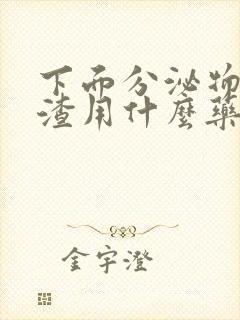 下面分泌物
渣用什麼藥
金宇澄